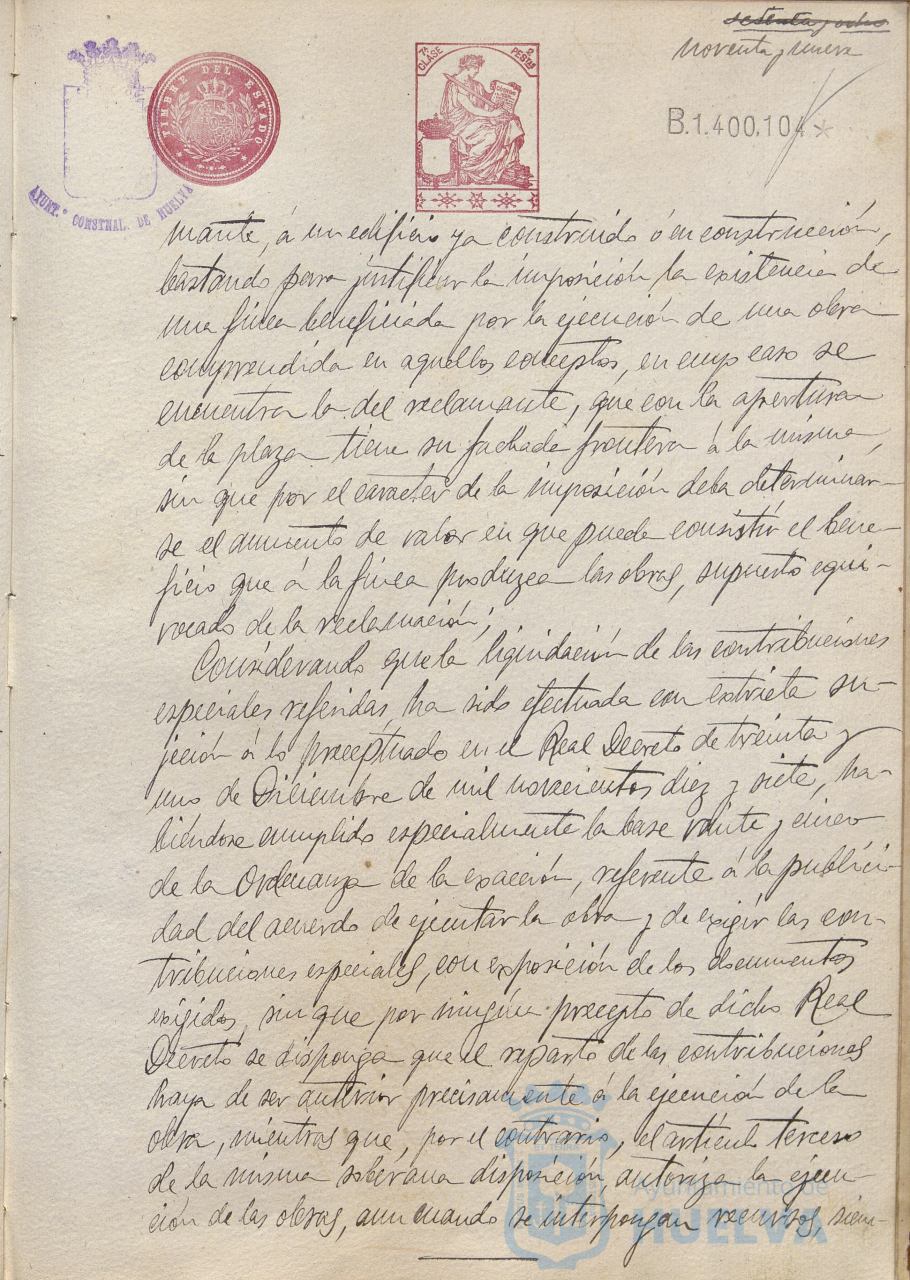 sesenta y ocho
noventa y nueve
7ª CLASE
2 PESTAS
TIMBRE DEL ESTADO
B.1.400,104 *
AYUNT.º CONSTNAL. DE HUELVA
mante, á un edificio ya construido ó en construcción,
bastando para justificar la imposición la existencia de
una finca beneficiada por la ejecución de una obra
comprendida en aquellos conceptos, en cuyo caso se
encuentra la del reclamante, que con la apertura
de la plaza tiene su fachada frontera á la misma,
sin que por el carácter de la imposición deba determinar-
se el aumento de valor en que puede consistir el bene-
ficio que á la finca produzca las obras, supuesto equi-
vocado de la reclamación;
Considerando que la liquidación de las contribuciones
especiales referidas, ha sido efectuada con extricta su-
jeción á lo preceptuado en el Real Decreto de treinta y
uno de Diciembre de mil novecientos diez y siete, ha-
biéndose cumplido especialmente la base veinte y cinco
de la Ordenanza de la exacción, referente á la publici-
dad del acuerdo de ejecutar la obra y de exigir las con-
tribuciones especiales, con exposición de los documentos
exigidos, sin que por ningún precepto de dicho Real
Decreto se disponga que el reparto de las contribuciones
haya de ser anterior precisamente á la ejecución de la
obra, mientras que, por el contrario, el artículo tercero
de la misma soberana disposición, autoriza la ejecu-
ción de las obras, aun cuando se interpongan recursos, sien-
Ayuntamiento de
HUELVA